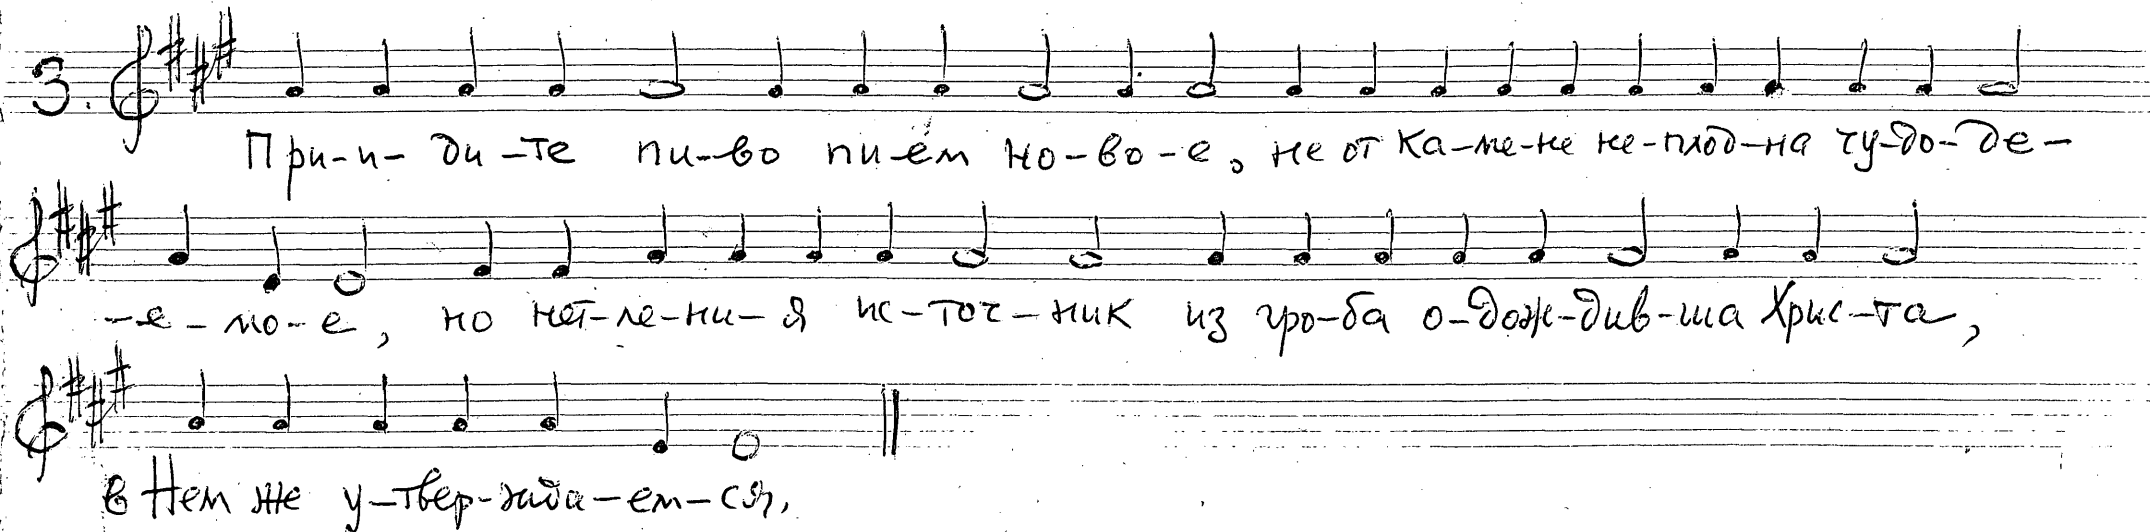 3.
При-и- ди-те пи-во пи-ем но-во-е, не от ка-ме-не не-плод-на чу-до-де-
-е-мо-е, но нет-ле-ни-я ис-точ-ник из гро-ба о-дож-див-ша Хрис-та,
в Нем же у-твер-жда-ем-ся.